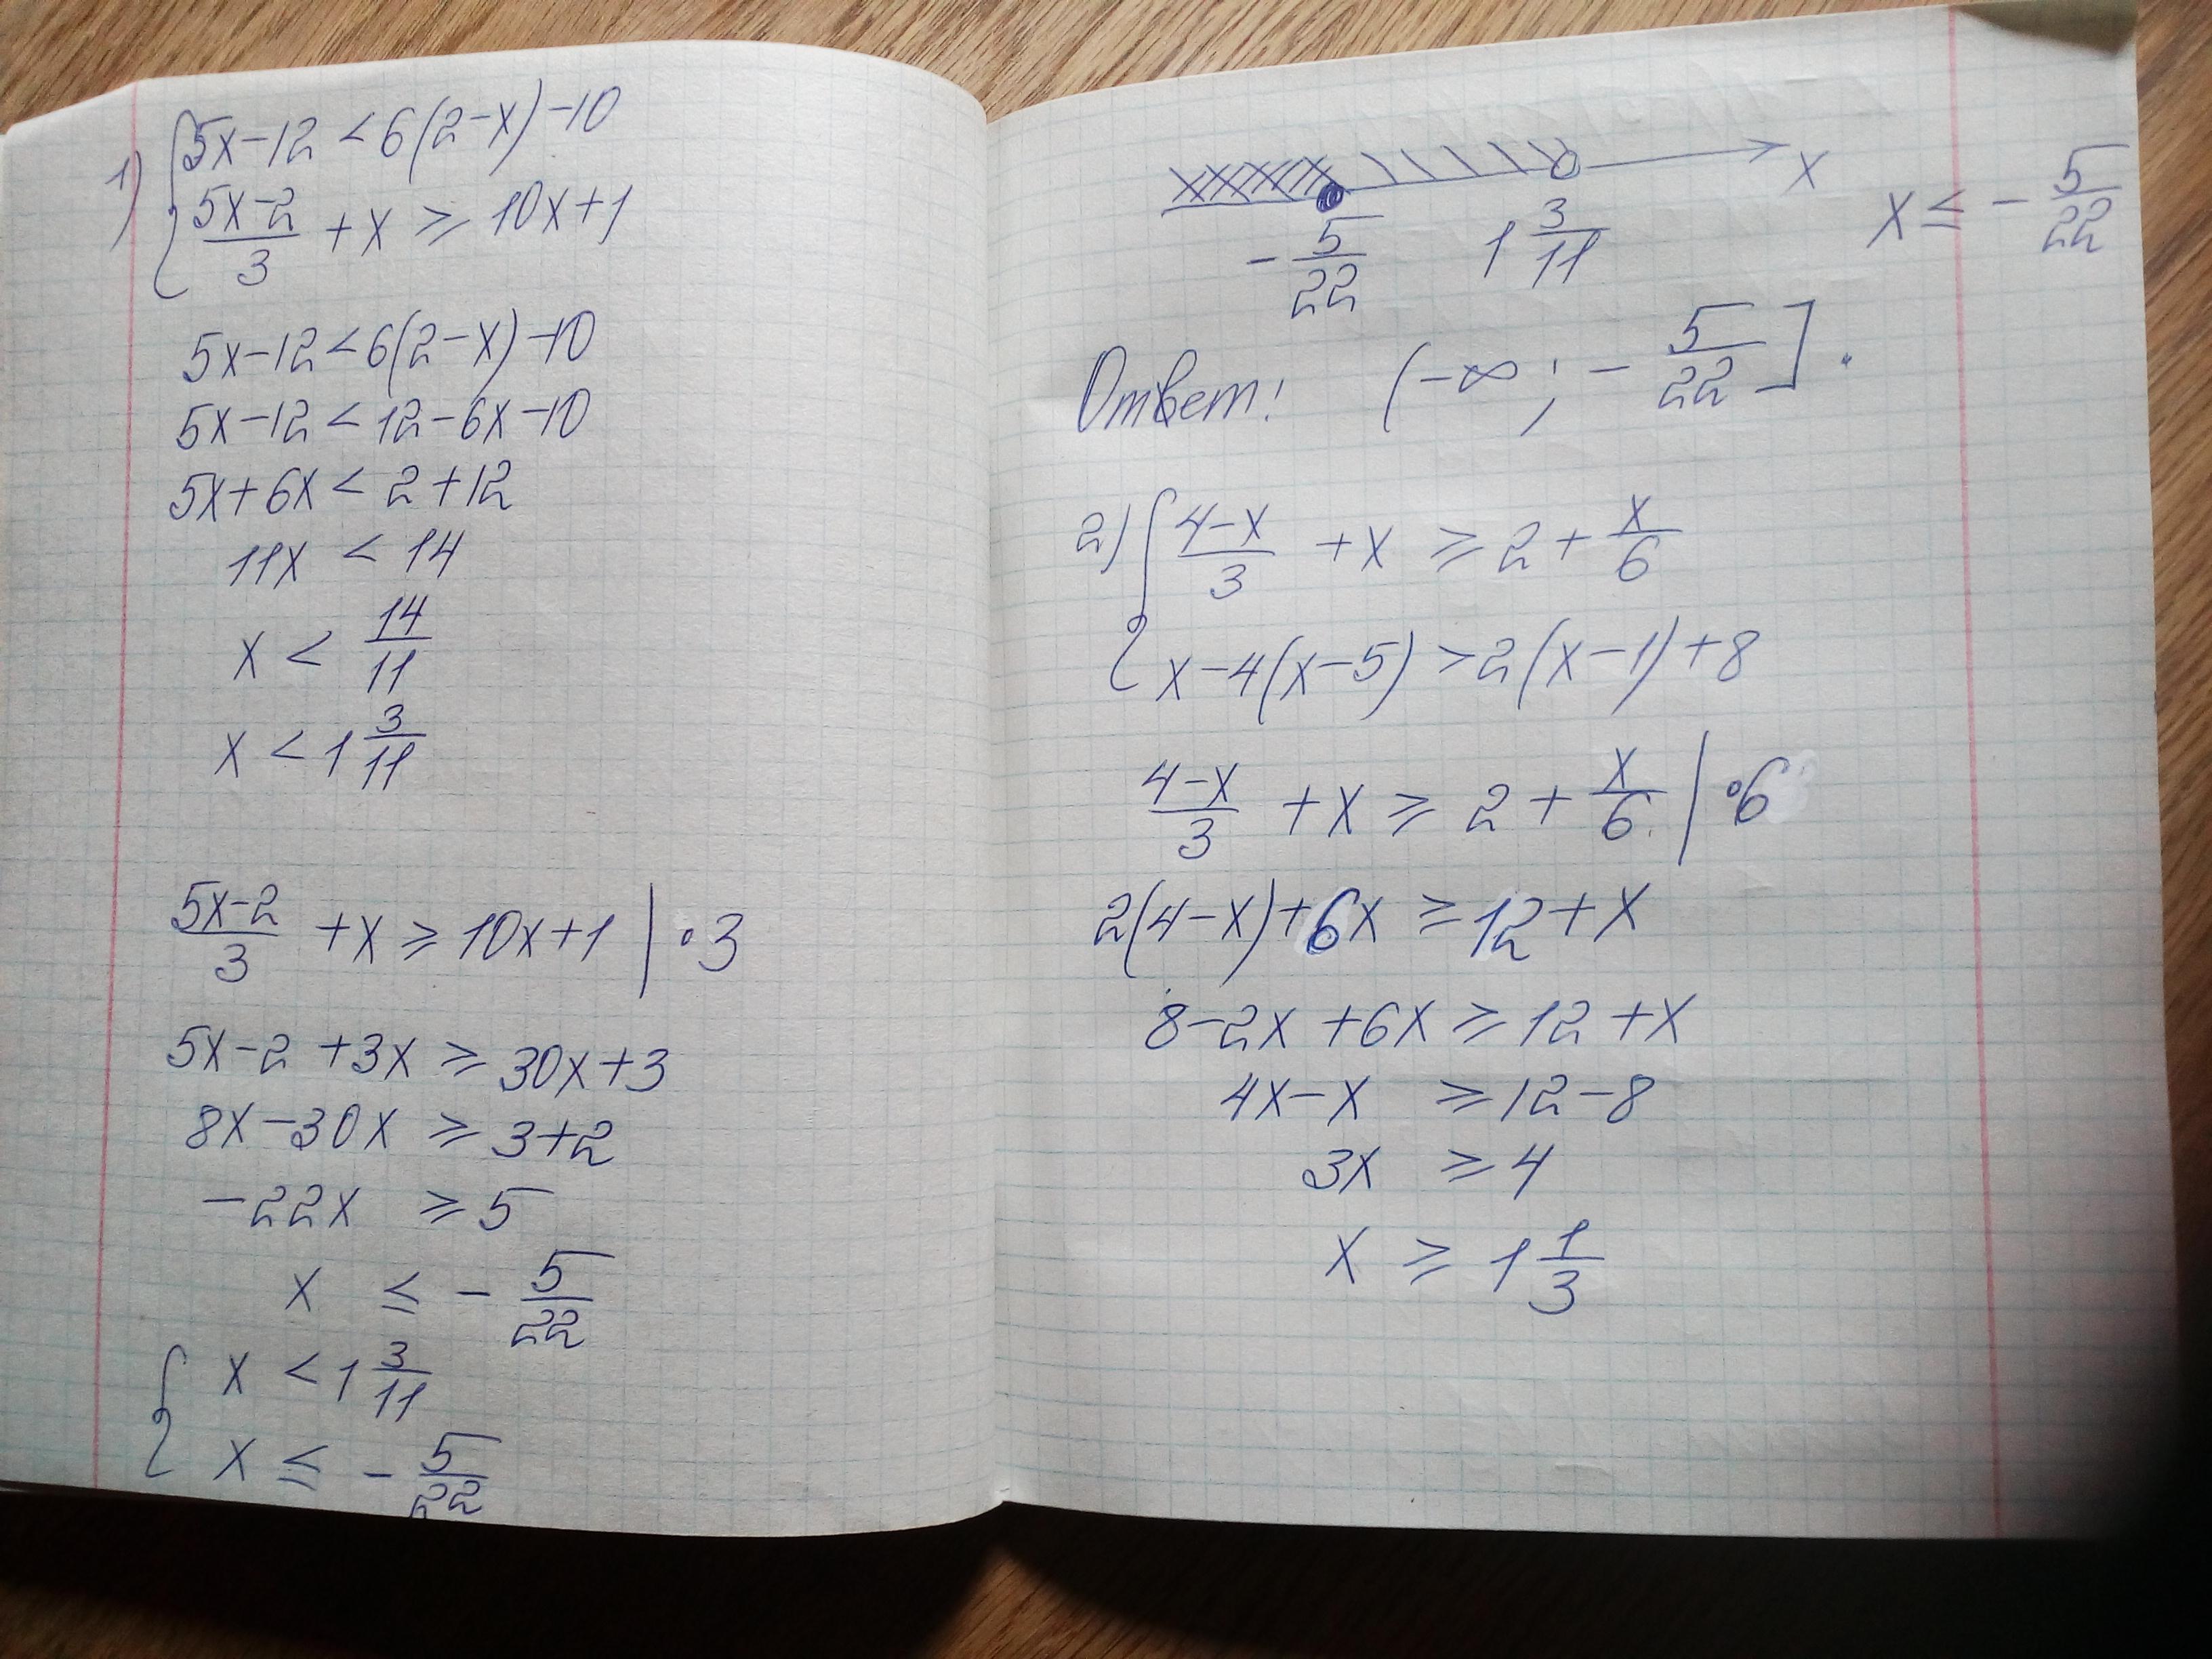 1) { 5x-12 < 6(2-x)-10
(5x-2)/3 + x ≥ 10x+1
5x-12 < 6(2-x)-10
5x-12 < 12-6x-10
5x+6x < 2+12
11x < 14
x < 14/11
x < 1 3/11
(5x-2)/3 + x ≥ 10x+1 | •3
5x-2+3x ≥ 30x+3
8x-30x ≥ 3+2
-22x ≥ 5
x ≤ - 5/22
{ x < 1 3/11
x ≤ - 5/22
x
- 5/22 1 3/11
x ≤ - 5/22
Ответ: (-∞; - 5/22].
2) { (4-x)/3 + x ≥ 2 + x/6
x-4(x-5) > 2(x-1)+8
(4-x)/3 + x ≥ 2 + x/6 | •6
2(4-x)+6x ≥ 12+x
8-2x+6x ≥ 12+x
4x-x ≥ 12-8
3x ≥ 4
x ≥ 1 1/3